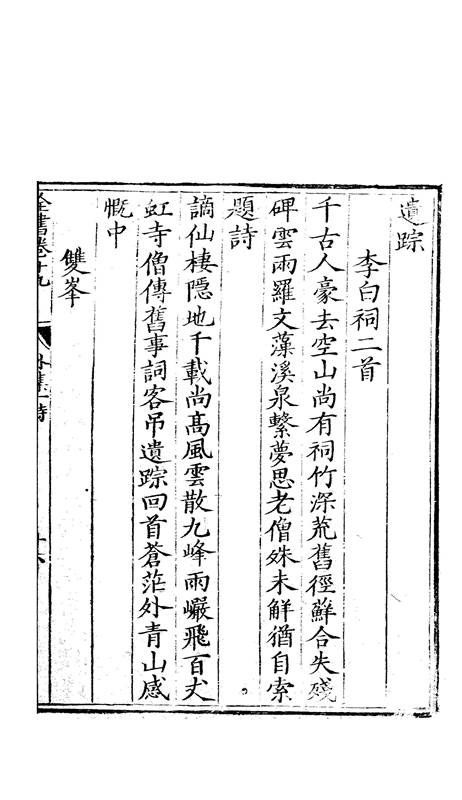 遺踪
李白祠二首
千古人豪去空山尚有祠竹深荒舊徑蘚合失殘
碑雲雨羅文藻溪泉繫夢思老僧殊未解猶自索
題詩
謫仙棲隱地千載尚高風雲散九峰雨巖飛百丈
虹寺僧傳舊事詞客吊遺踪回首蒼茫外青山感
慨中
雙峯
全書卷十九 外集一 詩